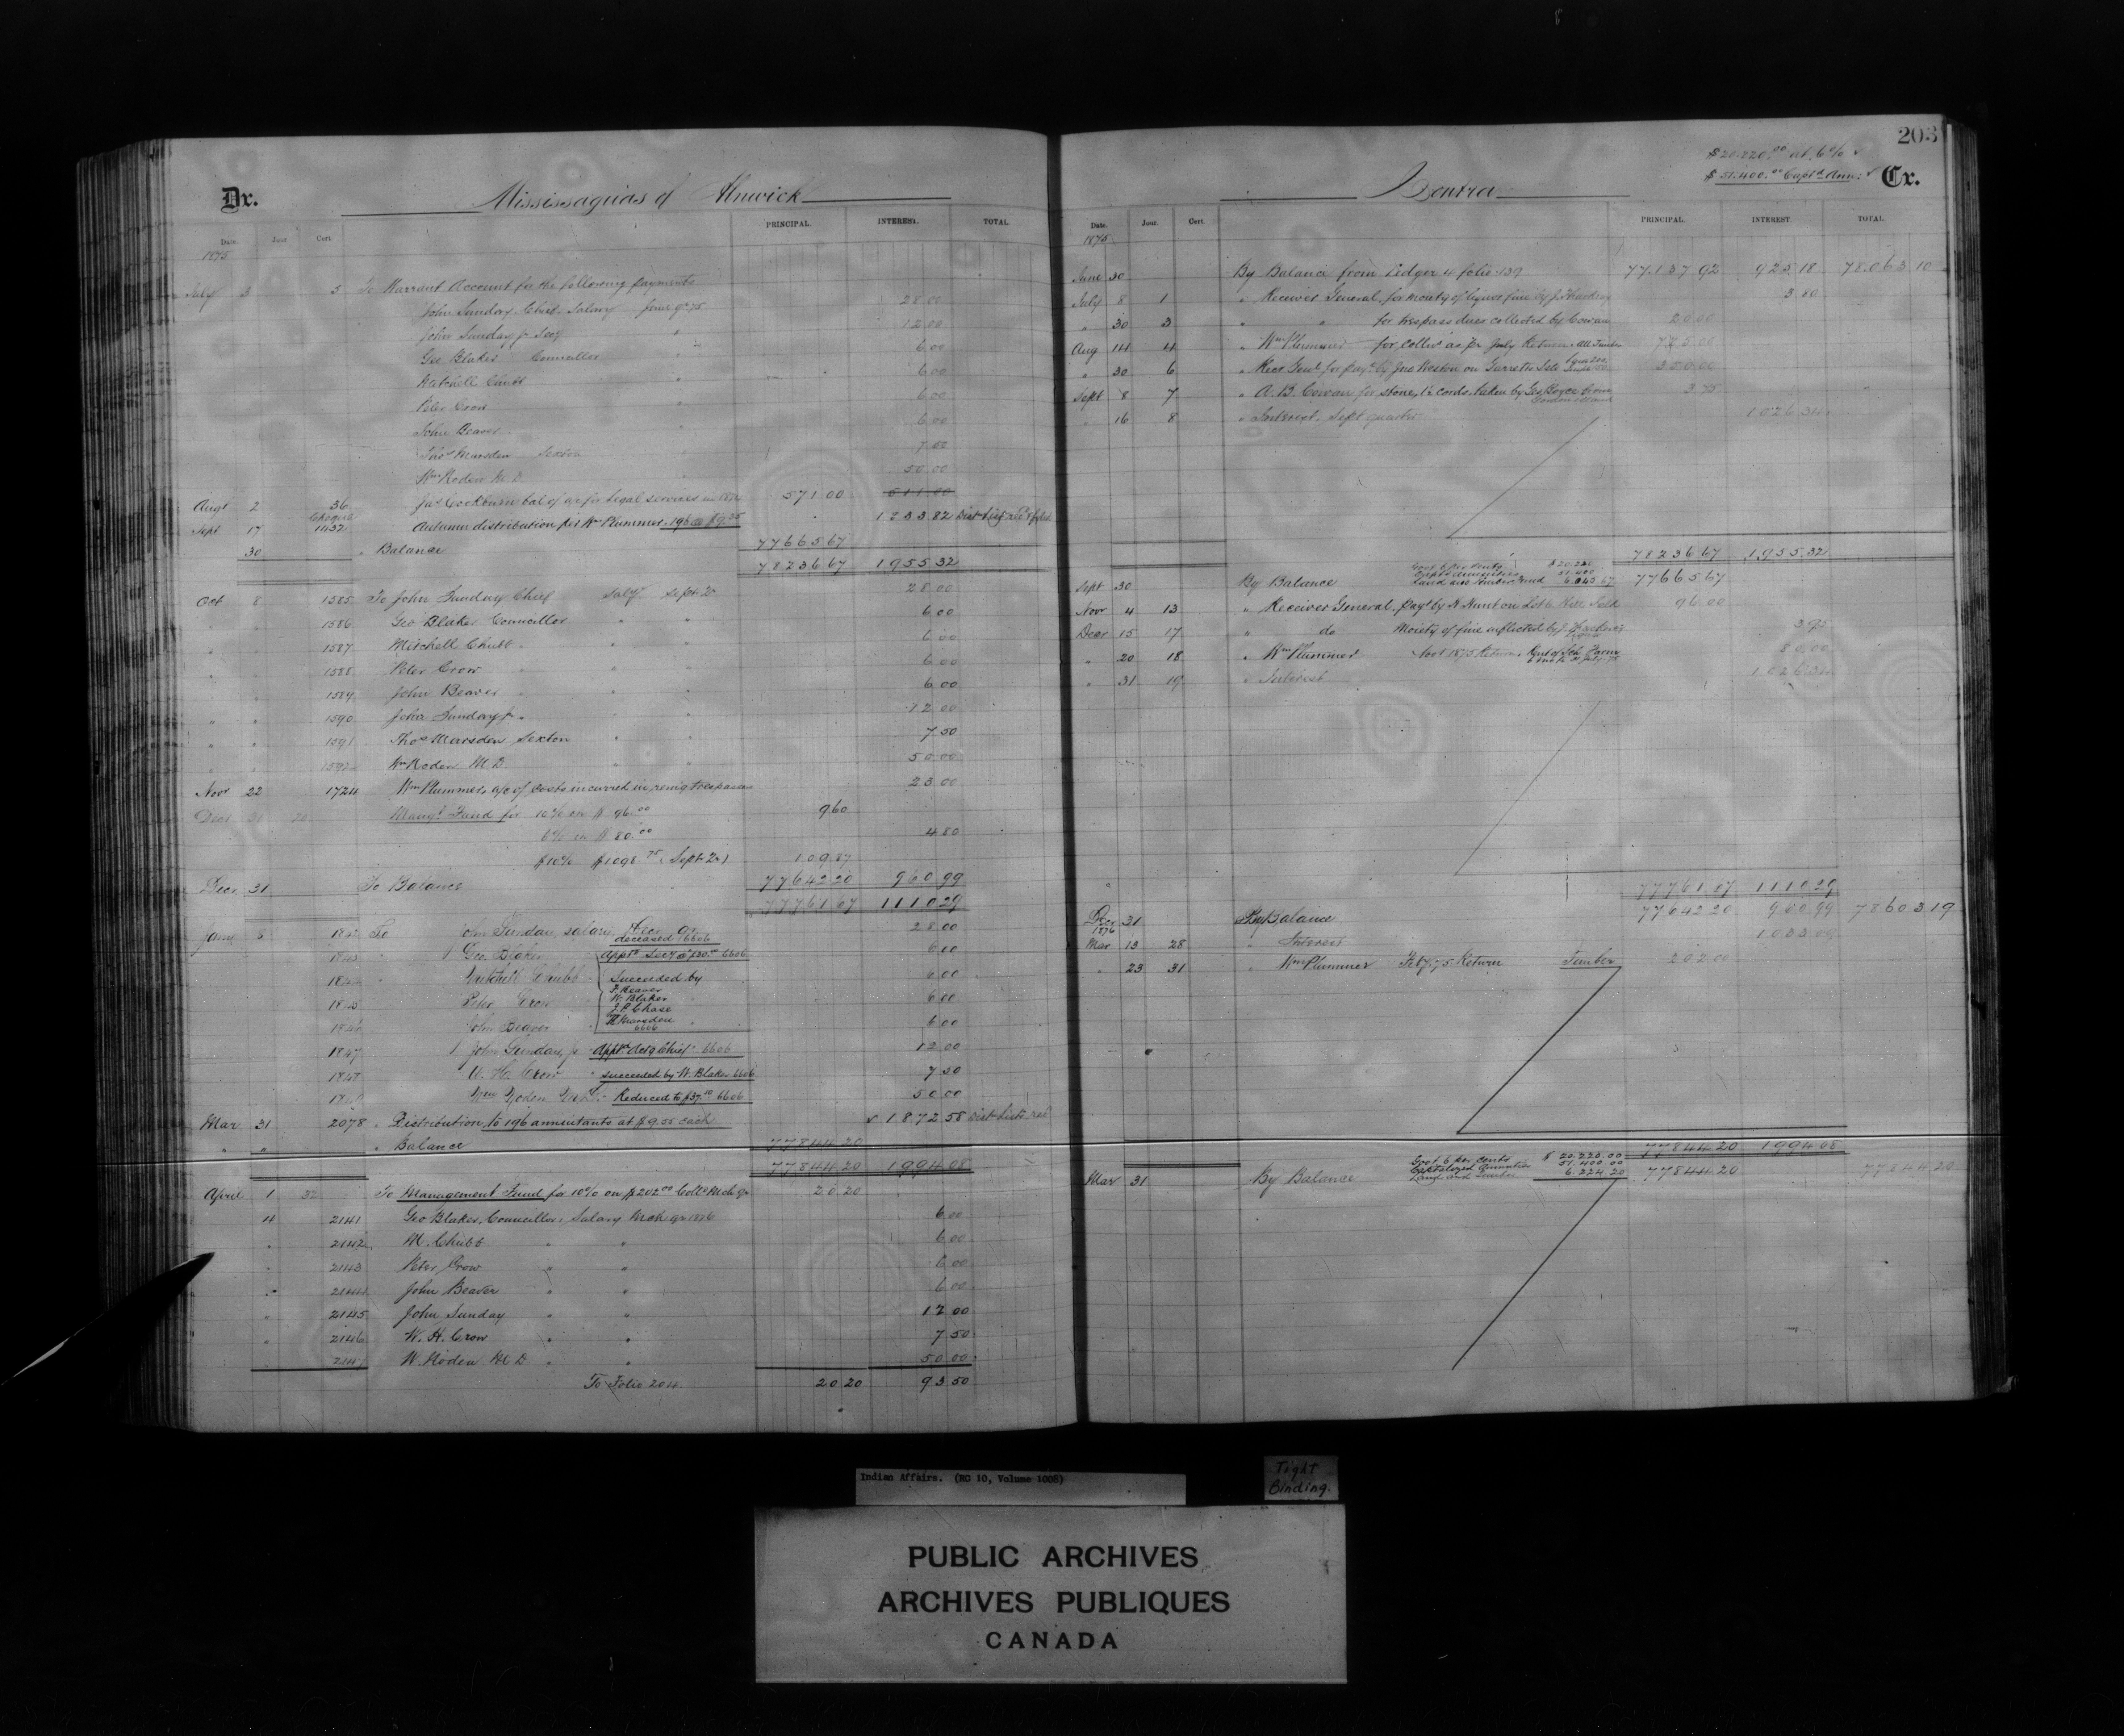 203
$20.220.00 at 6%
$51.400.00 Capt'd Ann:
Dr.
Mississaguas of Alnwick
Contra
Cr.
Date. Jour. Cert. PRINCIPAL. INTEREST. TOTAL.
1875
July 3 5 To Warrant Account for the following payments
John Sunday, Chief, Salary June Qr 75 28 00
John Sunday Jr Secy " 12 00
Geo Blaker Councillor " 6 00
Mitchell Chubb " 6 00
Peter Crow " 6 00
John Beaver " 6 00
Thos Marsden Sexton " 7 50
Wm Roden M.D. 50 00
Augt 2 36 Jas Cockburn bal of a/c for legal services in 571 00
Sept 17 Cheque 1432 Autumn distribution per Wm Plummer 196 @ $9.35 1833 82
30 " Balance 77665 67
78236 67 1955 32
Oct 8 1585 To John Sunday Chief Saly Sept Qr 28 00
" " 1586 Geo Blaker Councillor " " 6 00
" " 1587 Mitchell Chubb " " " 6 00
" " 1588 Peter Crow " " " 6 00
" " 1589 John Beaver " " " 6 00
" " 1590 John Sunday Jr " " 12 00
" " 1591 Thos Marsden Sexton " " 7 50
" " 1592 Wm Roden M.D. " " 50 00
Novr 22 1724 Wm Plummer, a/c of costs incurred in remg trespassers 23 00
Decr 31 20 Mangt Fund for 10% on $96.00 9 60
6% on $80.00 4 80
$10% $1098.75 (Sept Qr) 109 87
Dec 31 To Balance 77642 20 960 99
77761 67 1110 29
Jany 6 1842 To John Sunday, salary Dec Qr 28 00
deceased 6606
1843 Geo. Blaker Appt'd Secy @ $30.00 6606 6 00
1844 " Mitchell Chubb Succeeded by 6 00
1845 Peter Crow F. Beaver W. Blaker J.P. Chase 6 00
1846 John Beaver Marsden 6606 6 00
1847 John Sunday, Jr Appt'd Actg Chief 6606 12 00
1848 W. H. Crow " succeeded by W. Blaker 6606 7 50
1849 Wm Roden M.D. Reduced to $37.50 6606 50 00
Mar 31 2078 " Distribution to 196 annuitants at $9.55 each 1872 58 Dist Lists ret
" " " Balance 77844 20
77844 20 1994 08
April 1 32 To Management Fund for 10% on $202.00 Coll'd Mch Qr 20 20
4 2141 Geo Blaker, Councillor, Salary Mch qr 1876 6 00
" 2142 M. Chubb " " 6 00
" 2143 Peter Crow " " 6 00
" 2144 John Beaver " " 6 00
" 2145 John Sunday " " 12 00
" 2146 W. H. Crow " " 7 50
" 2147 W. Roden M D " " 50 00
To Folio 204 20 20 93 50
Date. Jour. Cert. PRINCIPAL. INTEREST. TOTAL.
1875
June 30 By Balance from Ledger 4 folio 139 77,137 92 925 18 78.063 10
July 8 1 " Receiver General, for moiety of liquor fine by J. Thackeray 3 80
" 30 3 " " for trespass dues collected by Cowan 20 00
Aug 14 4 " Wm Plummer for collns as pr July Return 725 00
" 30 6 " Recr Genl for payt by Jno Weston on Garretts Isle 350 00
Sept 8 7 " A. B. Cowan for stone, 12 cords, taken by Geo Boyce 3 75
" 16 8 " Interest, Sept quarter 1026 34
78236 67 1955 32
Govt 6 per cents $20.220
Capt'd annuities 51.400
Land and timber fund 6.045.67
Sept 30 By Balance 77665 67
Novr 4 13 " Receiver General, payt by H. Hunt on Lot 6 96 00
Decr 15 17 " do Moiety of fine inflicted by J. Thackeray 3 95
" 20 18 " Wm Plummer Novr 1875 Return, Rent of Sch. Farm 80 00
" 31 19 " Interest 1026 34
77761 67 1110 29
Dec 31 By Balance 77642 20 960 99 78603 19
1876
Mar 13 28 " Interest 1033 09
" 23 31 " Wm Plummer Feby 75 Return Timber 202 00
77844 20 1994 08
Govt 6 per cents $20.220.00
Capitalized Annuities 51.400.00
Land and Timber 6.224.20
Mar 31 By Balance 77844 20 77844 20
Indian Affairs. (RG 10, Volume 1005)
Tight
Binding.
PUBLIC ARCHIVES
ARCHIVES PUBLIQUES
CANADA